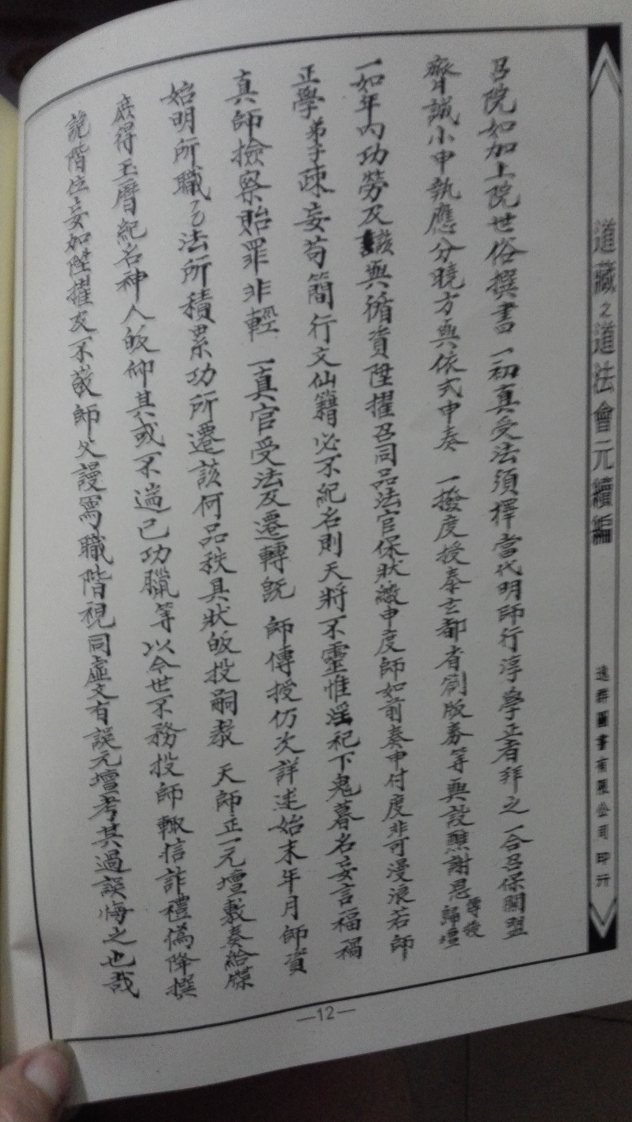 道藏之道法會元續編
逸群圖書有限公司 印行
呂院如加上院世俗撰書 一初真受法須擇當代明師行淳學正者拜之 一合呂保開盟
齋誠小申執應分曉方與依式申奏 一撥度授奉玄都省劄版券等與設醮謝恩 歸壇
一如年內功勞及該與循資陞擢召同品法官保狀繳申度師如前奏申付度非可漫浪若師
正學弟子疎妄苟簡行文仙籍必不紀名則天將不靈惟滛祀下鬼慕名妄言福禍
真師撿察貽罪非輕 一真官受法及遷轉既 師傳授仍次詳述始末年月師資
始明所職已法所積累功所遷該何品秩具狀皈投嗣教 天師正一元壇載奏給牒
庶得玉曆紀名神人皈仰其或不揣己功躐等以今世不務投師輒信詐禮偽降撰
詭階位妄如陞擢友不敬師父謾罵職階視同虛文有誤元壇考其過誤悔之也哉
—12—